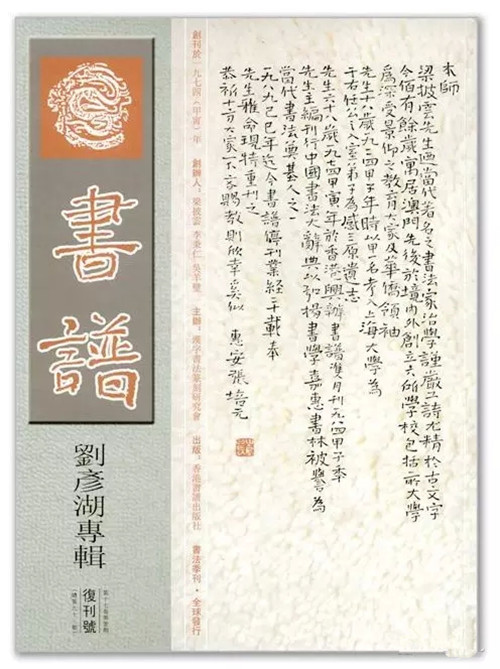 本師
梁披雲先生迺當代著名之書法家治學謹嚴工詩尤精於古文字
今佰有餘歲寓居澳門先後於境內外創立六所學校包括一所大學
為深受景仰之教育大家及華僑領袖
先生十八歲一九二四甲子年時以甲一名考入上海大學為
于右任公入室弟子為感三原遺志
先生六十八歲一九七四甲寅年於香港興辦書譜雙月刊一九八四甲子季
先生主編刊行中國書法大辭典以弘揚書學嘉惠書林被譽為
當代書法奠基人之一
一九八九己巳年迄今書譜停刊業經二十載奉
先生雅命現特重刊之
恭祈十方大家不吝賜教則欣幸奚似 惠安張培元
創刊於一九七四(甲寅)年 創辦人:梁披雲 李秉仁 吳羊璧 主辦:漢字書法篆刻研究會 出版:香港書譜出版社 書法季刊·全球發行
書譜
劉彥湖專輯
復刊號